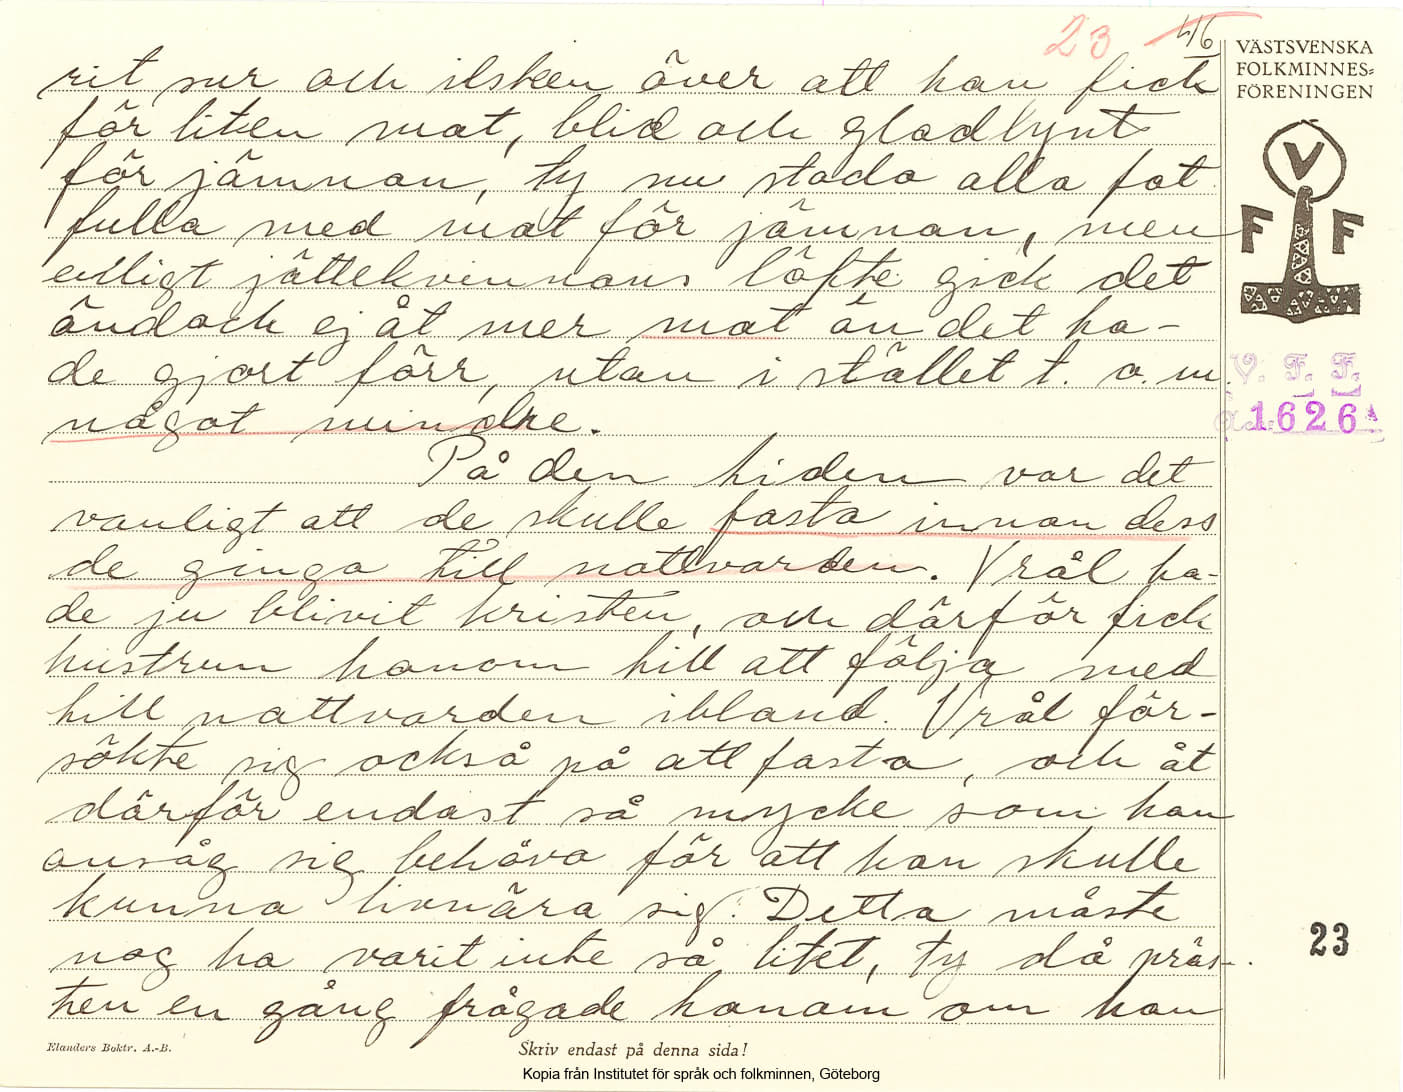 23 46
VÄSTSVENSKA
FOLKMINNES=
FÖRENINGEN
V
F F
V. F. F.
1626
rit sur och ilsken över att han fick
för liten mat, blid och gladlynt
för jämnan, ty nu stodo alla fat
fulla med mat för jämnan, men
enligt jättekvinnans löfte gick det
ändock ej åt mer mat än det ha-
de gjort förr, utan i stället t. o. m.
något mindre.
På den tiden var det
vanligt att de skulle fasta innan dess
de gingo till nattvarden. Vrål ha-
de ju blivit kristen, och därför fick
hustrun honom till att följa med
till nattvarden ibland. Vrål för-
sökte sig också på att fasta, och åt
därför endast så mycke som han
ansåg sig behöva för att han skulle
kunna livnära sig. Detta måste
nog ha varit inte så litet, ty då präs-
ten en gång frågade honom om han
23
Elanders Boktr. A.-B.
Skriv endast på denna sida!
Kopia från Institutet för språk och folkminnen, Göteborg